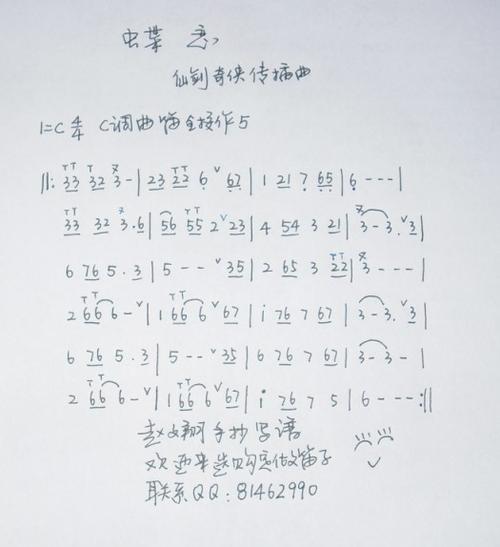 虫葉 恋
仙剑奇侠传插曲
1=C 4/4 C调曲笛全按作5
||: 33 32 3 - | 23 22 6 ∨ 67 | 1 21 7 65 | 6 - - - |
33 32 3.6 | 56 55 2 ∨ 23 | 4 54 3 21 | 3 - 3. ∨ 3 |
6 76 5 . 3 | 5 - - ∨ 35 | 2 65 3 22 | 3 - - - |
2 66 6 - ∨ | 1 66 6 ∨ 67 | i 76 7 67 | 3 - 3. ∨ 3 |
6 76 5. 3 | 5 - - ∨ 35 | 6 76 7 67 | 3 - 3 - |
2 66 6 - ∨ | 1 66 6 ∨ 67 | i 76 7 5 | 6 - - - :||
赵文翔手抄写谱
欢迎来选购竞做笛子
联系QQ:81462990